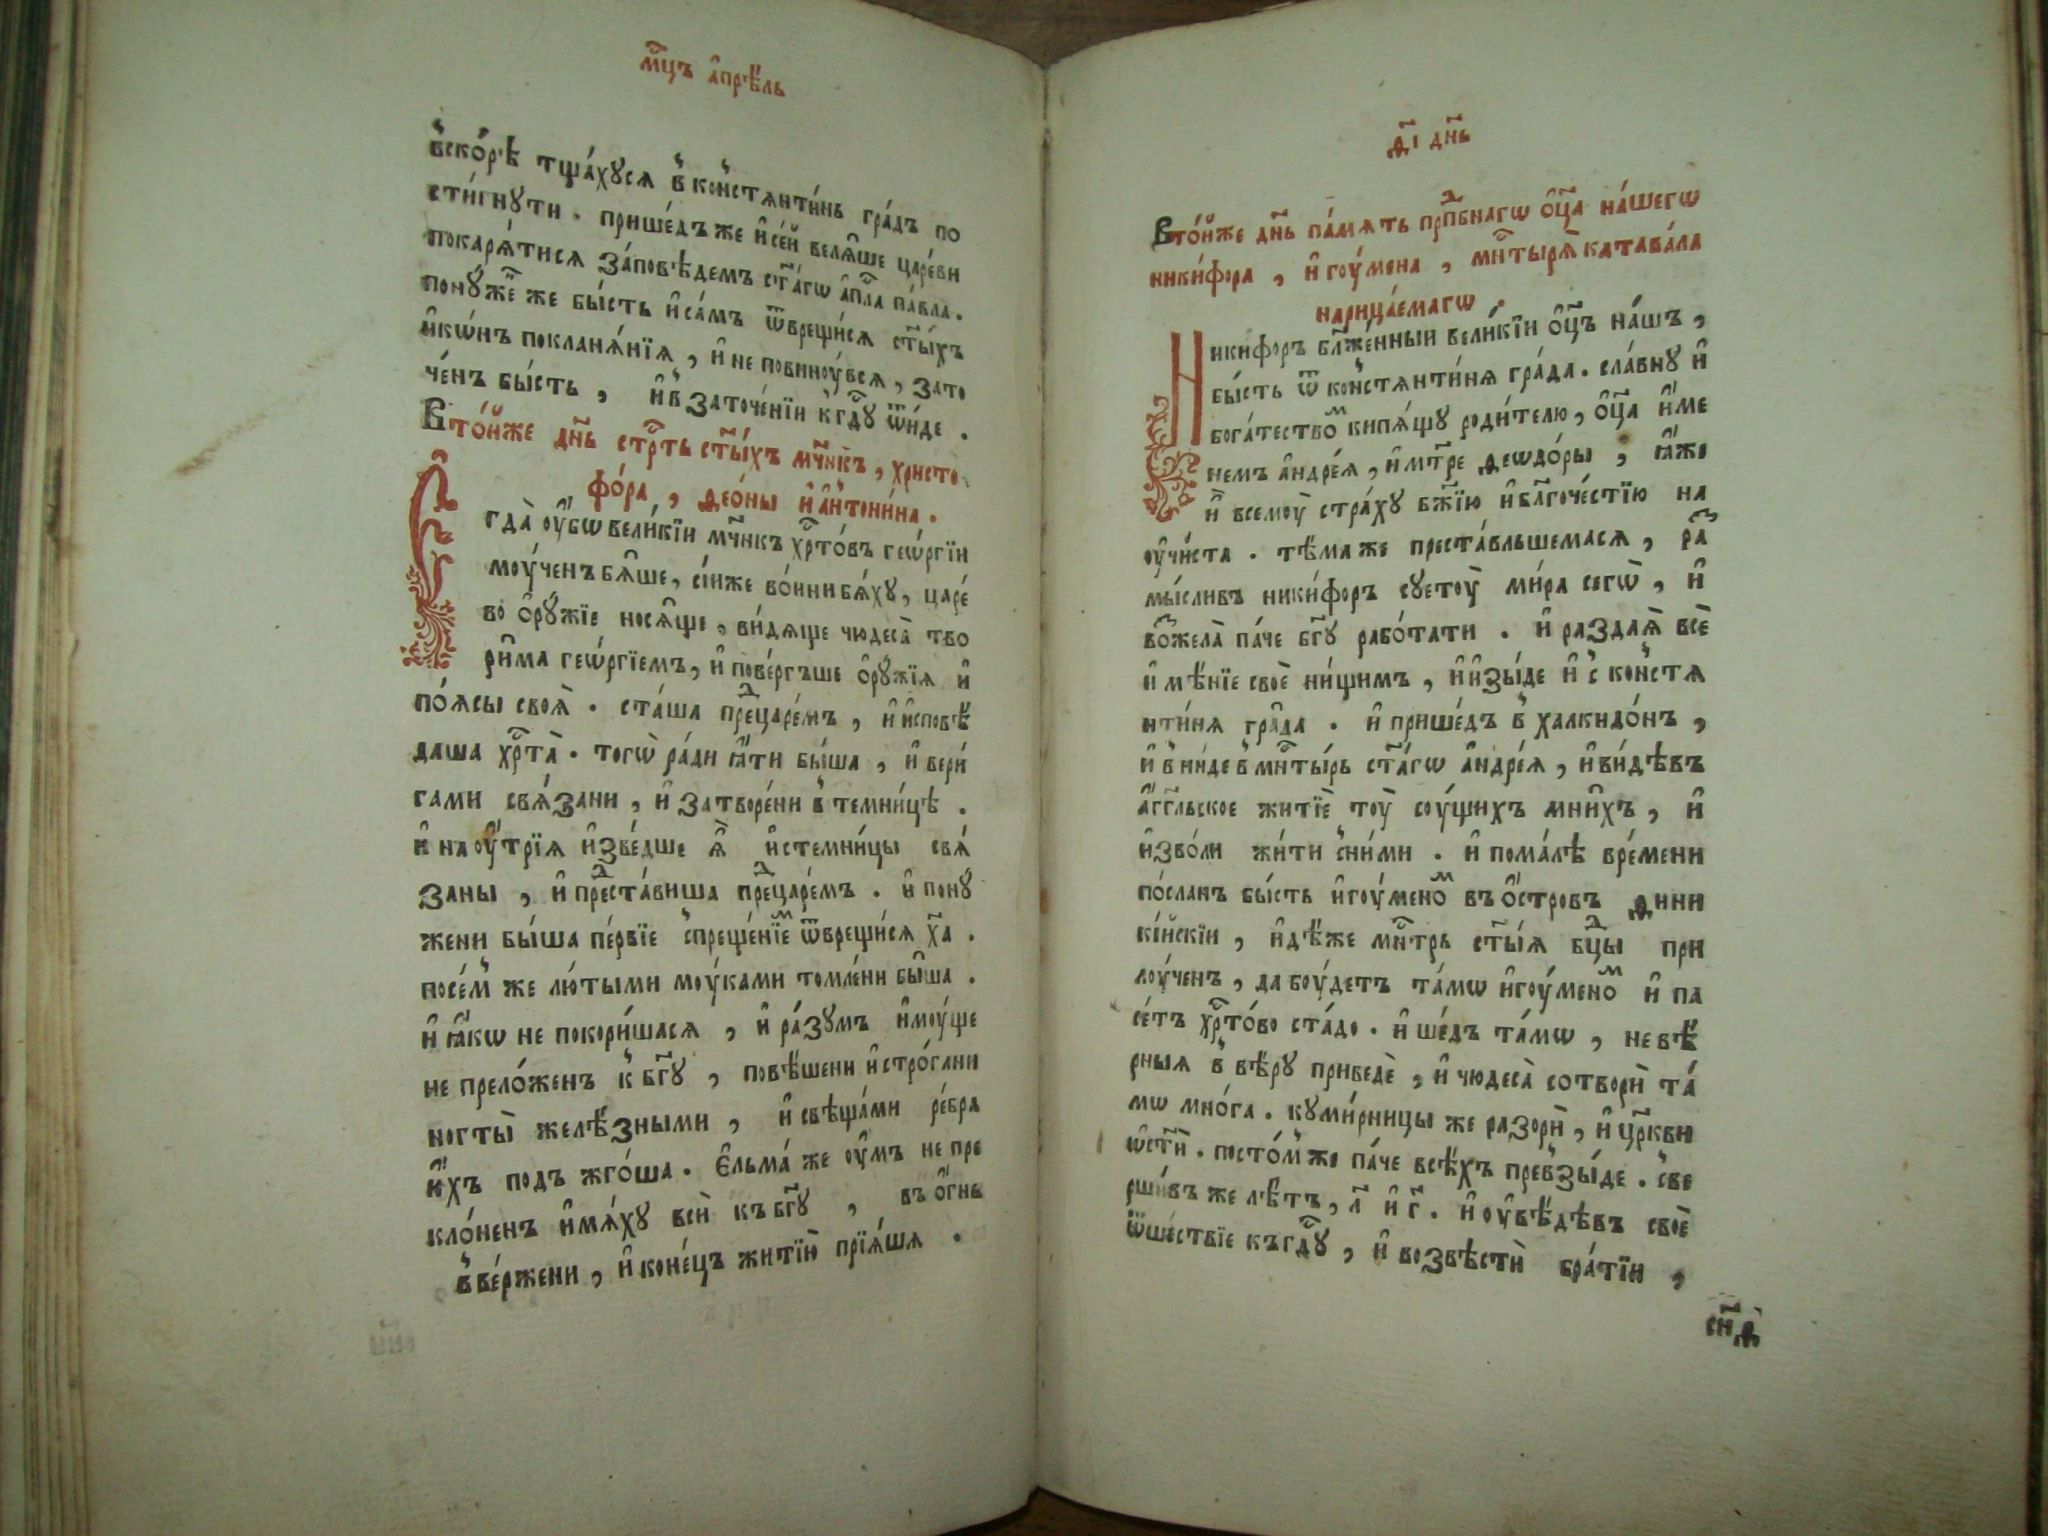 мⷭ҇цъ а҆прⷷ҇ль
вско́рѣ тщахꙋся в̾кон̾стянти́нь гра́дъ по
сти́гнꙋти. прише́дъ же и҆се́й веля́ше царе́ви
покаря́тися за́повѣдемъ ст҃а́гѡ а҆пⷭ҇ла па́вла.
понꙋ́же же бы́сть и҆са́мъ ѿврещи́ся ст҃ы́хъ
и҆кѡ́нъ покланя́нїѧ, и҆ не повиноу́вся, зато
че́нъ бы́сть, и҆в̾ заточе́нїи к̾гдⷭ҇ꙋ ѿи́де.
Вто́йже дн҃ь стрⷭ҇ть ст҃ы́хъ мч҃нкъ, христо
фо́ра, ѳео́ны и҆ а҆нтони́на.
Є҆гда̀ оу҆́бѡ вели́кїи мч҃нкъ хрⷭ҇то́въ геѡ́ргїи
моу́ченъ бя́ше, сі́иже во́ини бя́хꙋ, царе́
во ѻ҆рꙋ́жїе нося́ще, ви́дяще чюдеса̀ тво
ри́ма геѡ́ргїемъ, и҆ пове́ргъше ѻ҆рꙋ́жїя и҆
по́ясы своѧ̀. ста́ша преⷣцаре́мъ, и҆ и҆сповѣ́
даша хрⷭ҇та̀. тогѡ̀ ра́ди ꙗ҆́ти бы́ша, и҆ вери́
гами свя́зани, и҆ затворе́ни в̾ темни́цѣ.
и҆ на оу҆́трїя и҆зве́дше ѧ҆̀ и҆стемни́цы свя́
заны, и҆ преⷣста́виша преⷣцаре́мъ. и҆ понꙋ́
жени бы́ша пе́рвїе с̾преще́нїеⷨ ѿврещи́ся хⷭ҇а.
посе́м же лю́тыми моу́ками томле́ни бы́ша.
и҆ ꙗ҆́кѡ не покори́шася, и҆ ра́зꙋмъ и҆моу́ще
не прело́женъ к̾ бг҃ꙋ, повѣ́шени и҆ стро́гани
ногты̀ желѣ́зными, и҆ свѣща́ми ре́бра
и҆́хъ подъ жго́ша. є҆льма́ же оу҆́мъ не пре
кло́ненъ и҆мя́хꙋ всѝ къ бг҃ꙋ, въ ѻ҆гнь
в̾ве́ржени, и҆ коне́цъ житїю̀ прїя́шя.
д҃і дн҃ь
Вто́йже дн҃ь па́мять прпⷣбнагѡ ѻ҆ц҃а на́шегѡ
ники́фора, и҆гоу́мена, мнⷭ҇тыря̀ катава́ла
нарица́емагѡ.
Ники́форъ блаже́нныи вели́кїи ѻ҆ц҃ъ на́шъ,
бы́сть ѿ кон̾стянти́ня гра́да. сла́внꙋ и҆
бога́тествоⷨ кипя́щꙋ роди́телю, ѻ҆ц҃а и҆́ме
немъ а҆ндре́я, и҆ мт҃ре ѳеѡдо́ры, ꙗ҆́же
и҆̀ всемоу̀ стра́хꙋ бж҃їю и҆ бл҃гоче́стїю на
оу҆чи́ста. тѣ́ма же преста́вльшемася, раⷥ
мы́сливъ ники́форъ сꙋетоу̀ ми́ра сегѡ̀, и҆
воⷥжела̀ па́че бг҃ꙋ рабо́тати. и҆ раздая̀ всѐ
и҆мѣ́нїе своѐ ни́щимъ, и҆ и҆зы́де и҆ с̾ кон̾стя
нти́ня гра́да. и҆ прише́дъ в̾ халкидо́нъ,
и҆ в̾ни́де в̾ мнⷭ҇ты́рь ст҃а́гѡ а҆ндре́я, и҆ ви́дѣвъ
а҆́гг҃льское житїѐ тоу̀ соу́щихъ мни́хъ, и҆
и҆зво́ли жи́ти с̾ни́ми. и҆ пома́лѣ вре́мени
по́сланъ бы́сть и҆гоу́меноⷨ въ ѻ҆́стровъ ѳини
кі́йскїи, и҆дѣ́же мнⷭ҇трь ст҃ы́я бцⷣы при
лоу́ченъ, да боу́детъ та́мѡ и҆гоу́меноⷨ и҆ па
се́тъ хрⷭ҇то́во ста́до. и҆ ше́дъ та́мѡ, невѣ́
рныя в̾ вѣ́рꙋ приведѐ, и҆ чюдеса̀ сотворѝ та́
мѡ мно́га. кꙋми́рницы же разорѝ, и҆ цр҃кви
ѡ҆ст҃ѝ. посто́мже па́че всѣ́хъ превзы́де. с̾ве
рши́въ же лѣ́тъ, л҃ и҆ г҃. и҆ оу҆вѣ́дѣвъ своѐ
ѿше́ствїе къ гдⷭ҇ꙋ, и҆ возвѣстѝ бра́тїи,
сн҃ѳ